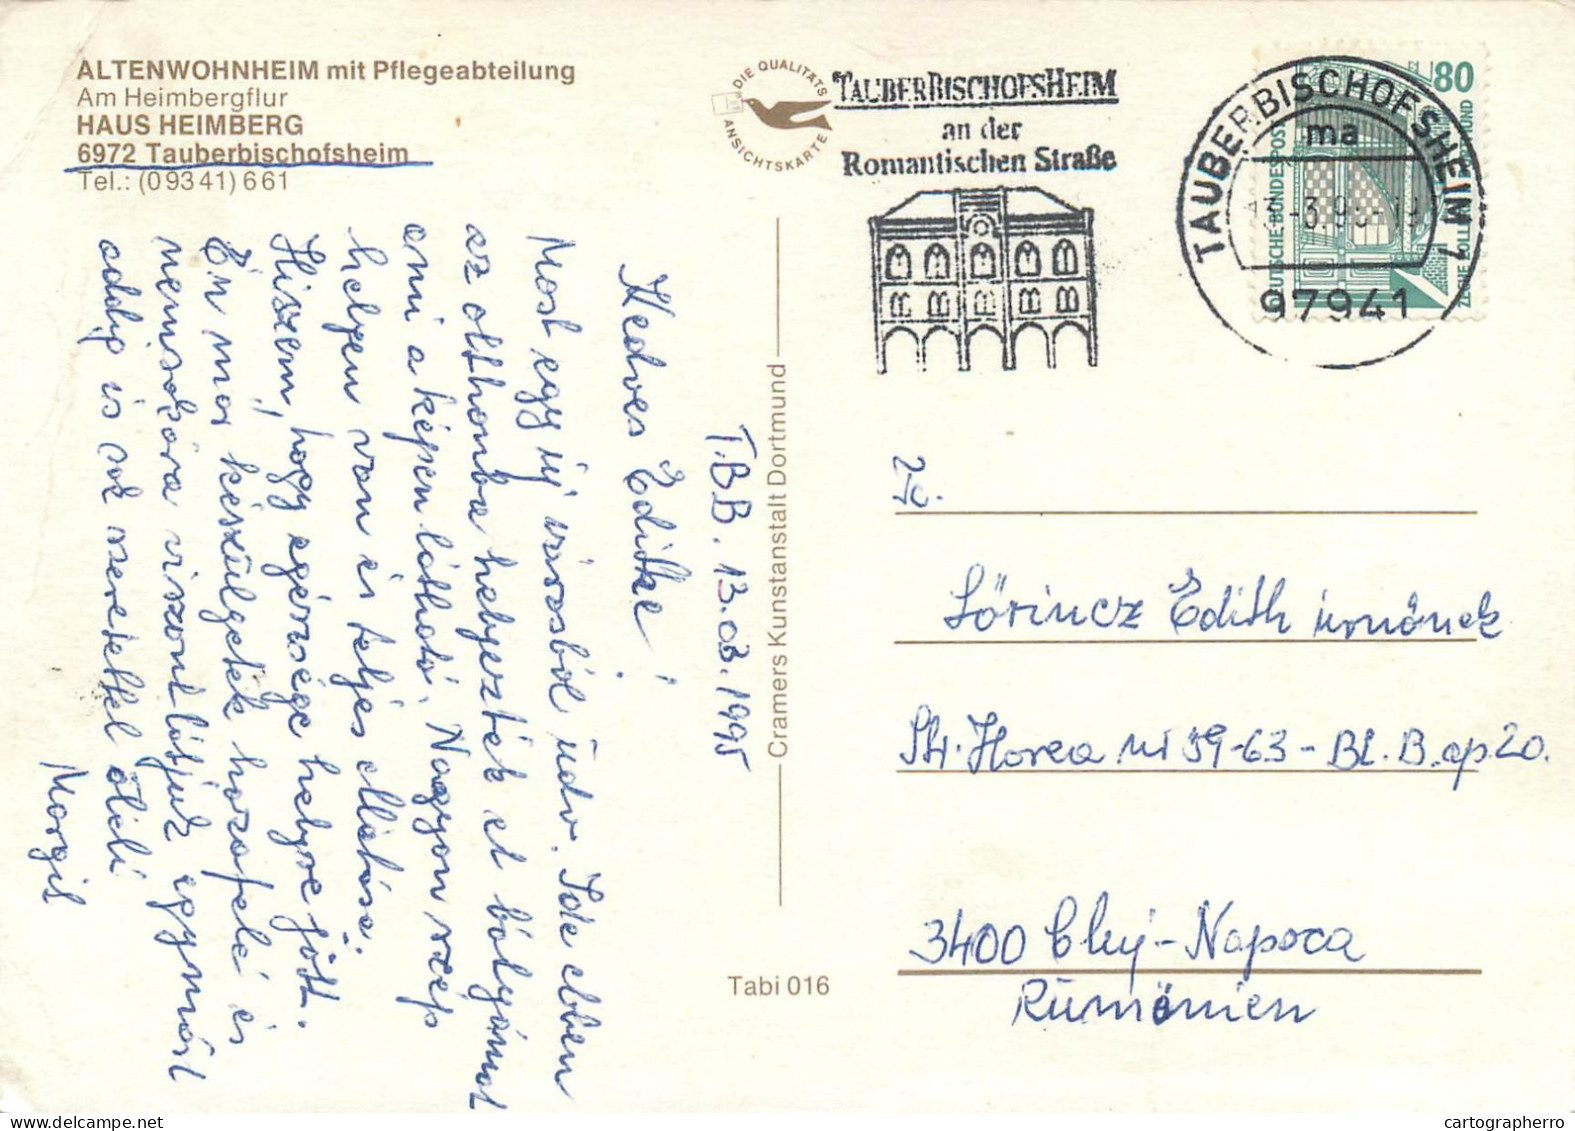 ALTENWOHNHEIM mit Pflegeabteilung
Am Heimbergflur
HAUS HEIMBERG
6972 Tauberbischofsheim
Tel.: (09341) 661
DIE QUALITÄTS
ANSICHTSKARTE
TAUBERBISCHOFSHEIM
an der
Romantischen Straße
TAUBERBISCHOFSHEIM 1
ma
97941
80
DEUTSCHE BUNDESPOST
T.B.B. 13.03.1995
Kedves Editke!
Most egy új városból üdv. Ide ebben
az otthonba helyezték el bátyámat
ami a képen látható. Nagyon szép
helyen van és teljes ellátása.
Hiszem, hogy egészsége helyre jött.
Én már készülgetek hazafelé és
nemsokára viszont látjuk egymást
addig is sok szeretettel ölel
Margit
Cramers Kunstanstalt Dortmund
Tabi 016
Lőrincz Edith úrnőnek
Str. Horea nr 59-63 - Bl. B. ap 20.
3400 Cluj-Napoca
Rumänien
cartographerro